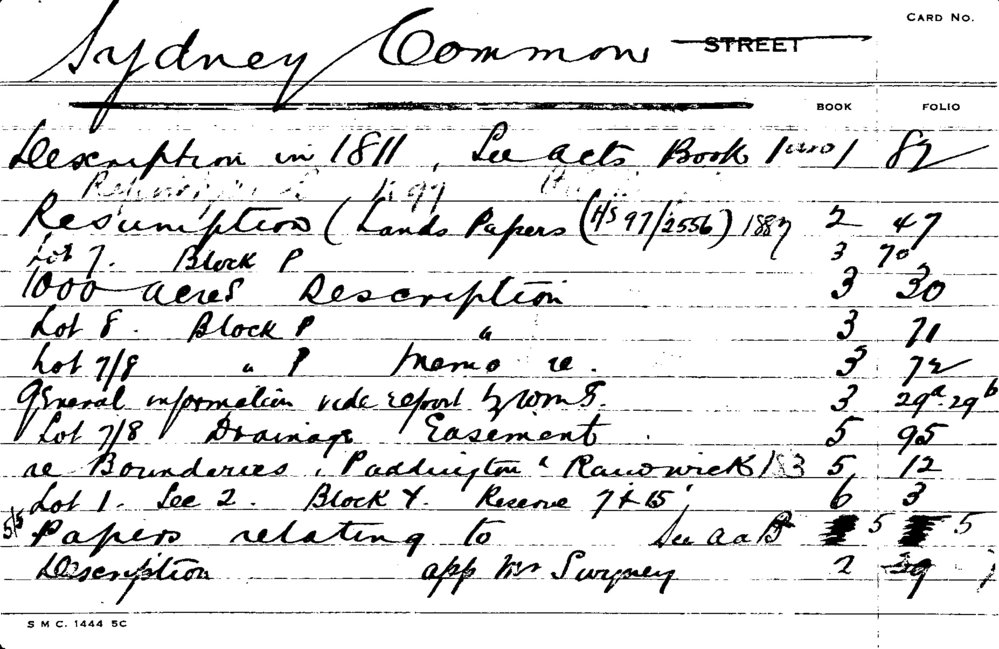 CARD NO.
Sydney Common STREET
BOOK FOLIO
Description in 1811, See Acts Book 1 1 82
Resumption (Lands Papers (HS 97/2556) 1887 2 47
Lot 7. Block P 3 70
1000 acres Description 3 30
Lot 8. Block P " 3 71
Lot 7/8 " P Memo re. 3 72
General information vide report by 3 29a-29b
Lot 7/8 Drainage Easement. 5 95
re Bounderies, Paddington & Randwick 183 5 12
Lot 1. Sec 2. Block 4. Reserve 7 & 15 6 3
5/5 Papers relating to See aaB 5 5
Description app Mr Swyney 2 29
S M C. 1444 5C